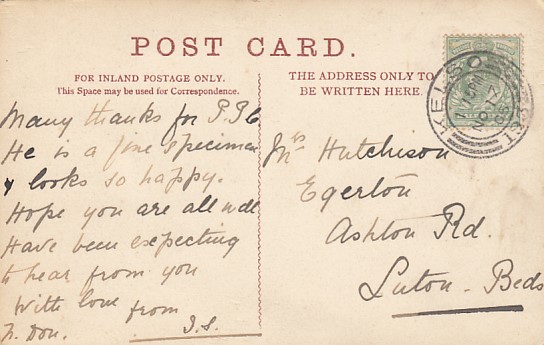 POST CARD.
FOR INLAND POSTAGE ONLY.
This Space may be used for Correspondence.
THE ADDRESS ONLY TO
BE WRITTEN HERE.
KELSO
Many thanks for P.P.C
He is a fine specimen
& looks so happy.
Hope you are all well
Have been expecting
to hear from you
With love from
J.S.
Mrs Hutchison
Egerton
Ashton Rd.
Luton - Beds